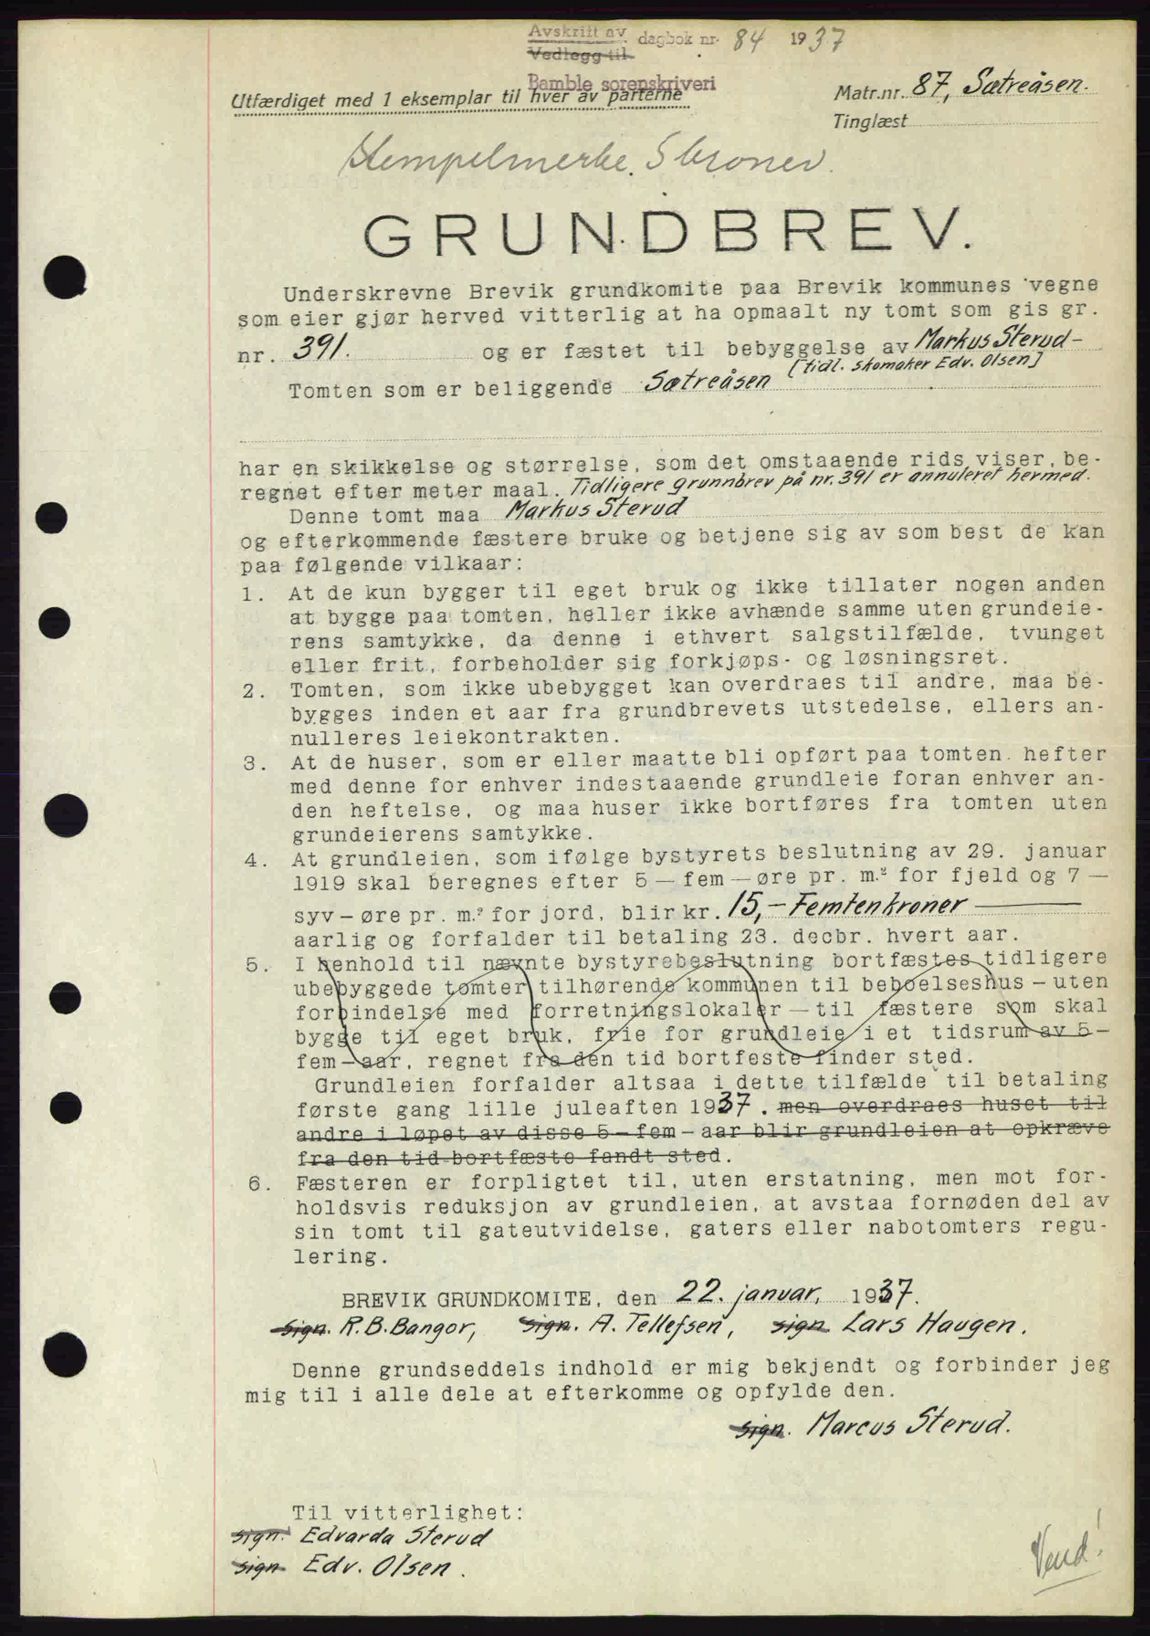 Avskrift av dagbok nr. 84 1937
Vedlegg til
Bamble sorenskriveri
Utfærdiget med 1 eksemplar til hver av parterne
Matr.nr. 87, Sætreåsen.
Tinglæst
Stempelmerke. 5 kroner.
GRUNDBREV.
Underskrevne Brevik grundkomite paa Brevik kommunes vegne
som eier gjør herved vitterlig at ha opmaalt ny tomt som gis gr.
nr. 391. og er fæstet til bebyggelse av Markus Sterud-
[tidl. skomaker Edv. Olsen]
Tomten som er beliggende Sætreåsen
har en skikkelse og størrelse, som det omstaaende rids viser, be-
regnet efter meter maal. Tidligere grunnbrev på nr. 391 er annuleret hermed.
Denne tomt maa Markus Sterud
og efterkommende fæstere bruke og betjene sig av som best de kan
paa følgende vilkaar:
1. At de kun bygger til eget bruk og ikke tillater nogen anden
at bygge paa tomten, heller ikke avhænde samme uten grundeie-
rens samtykke, da denne i ethvert salgstilfælde, tvunget
eller frit, forbeholder sig forkjøps- og løsningsret.
2. Tomten, som ikke ubebygget kan overdraes til andre, maa be-
bygges inden et aar fra grundbrevets utstedelse, ellers an-
nulleres leiekontrakten.
3. At de huser, som er eller maatte bli opført paa tomten. hefter
med denne for enhver indestaaende grundleie foran enhver an-
den heftelse, og maa huser ikke bortføres fra tomten uten
grundeierens samtykke.
4. At grundleien, som ifølge bystyrets beslutning av 29. januar
1919 skal beregnes efter 5 — fem — øre pr. m.² for fjeld og 7 —
syv — øre pr. m.² for jord, blir kr. 15,- Femten kroner
aarlig og forfalder til betaling 23. decbr. hvert aar.
5. I henhold til nævnte bystyrebeslutning bortfæstes tidligere
ubebyggede tomter tilhørende kommunen til beboelseshus — uten
forbindelse med forretningslokaler — til fæstere som skal
bygge til eget bruk, frie for grundleie i et tidsrum av 5 —
fem — aar, regnet fra den tid bortfeste finder sted.
Grundleien forfalder altsaa i dette tilfælde til betaling
første gang lille juleaften 1937. men overdraes huset til
andre i løpet av disse 5 — fem — aar blir grundleien at opkræve
fra den tid bortfæste fandt sted.
6. Fæsteren er forpligtet til, uten erstatning, men mot for-
holdsvis reduksjon av grundleien, at avstaa fornøden del av
sin tomt til gateutvidelse, gaters eller nabotomters regu-
lering.
BREVIK GRUNDKOMITE, den 22. januar, 1937.
sign. R.B. Bangor, sign. A. Tellefsen, sign Lars Haugen.
Denne grundseddels indhold er mig bekjendt og forbinder jeg
mig til i alle dele at efterkomme og opfylde den.
sign. Marcus Sterud.
Til vitterlighet:
sign. Edvarda Sterud
sign Edv. Olsen.
Vend!